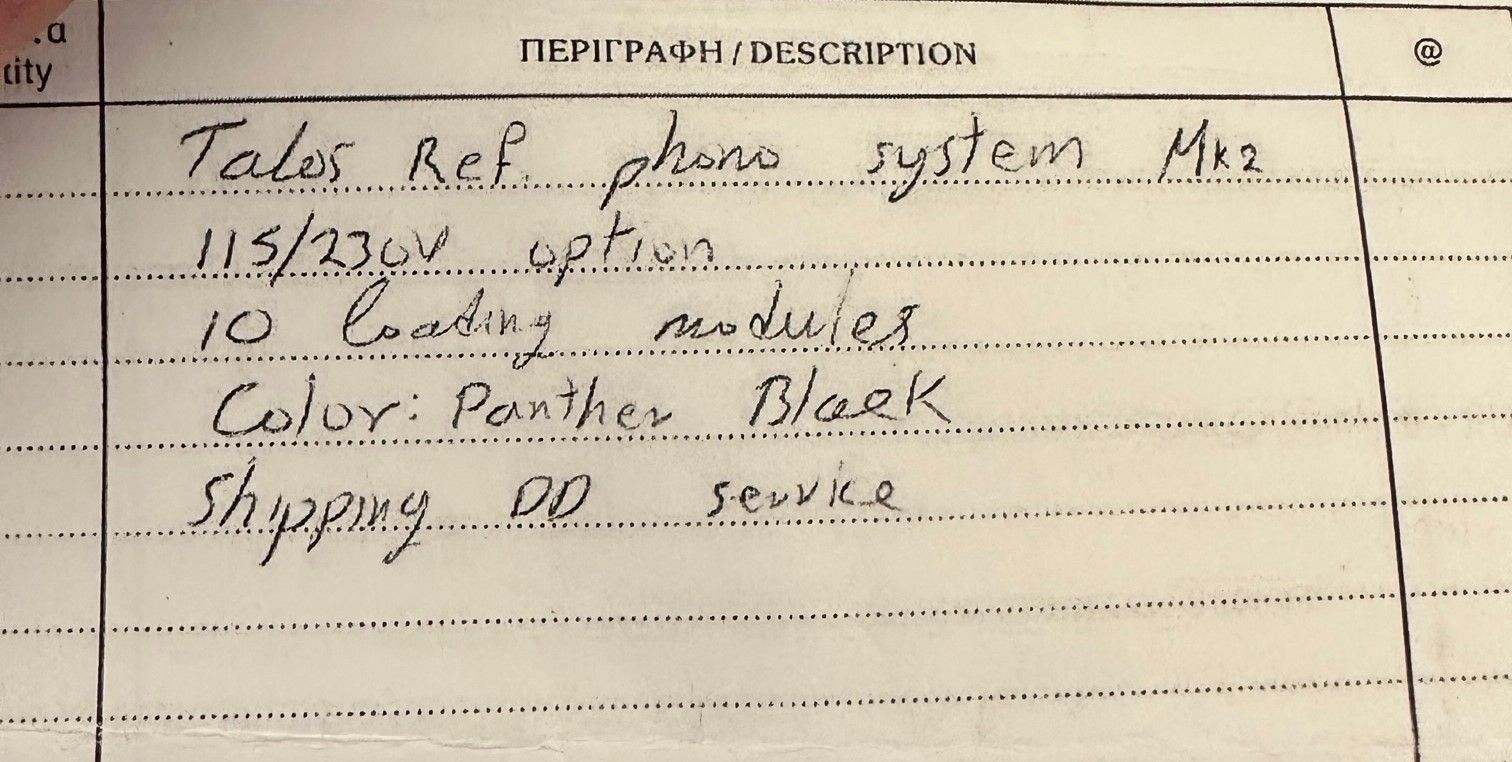 .α ΠΕΡΙΓΡΑΦΗ / DESCRIPTION @
tity
Talos Ref. phono system Mk2
115/230V option
10 loading modules
Color: Panther Black
Shipping DD service